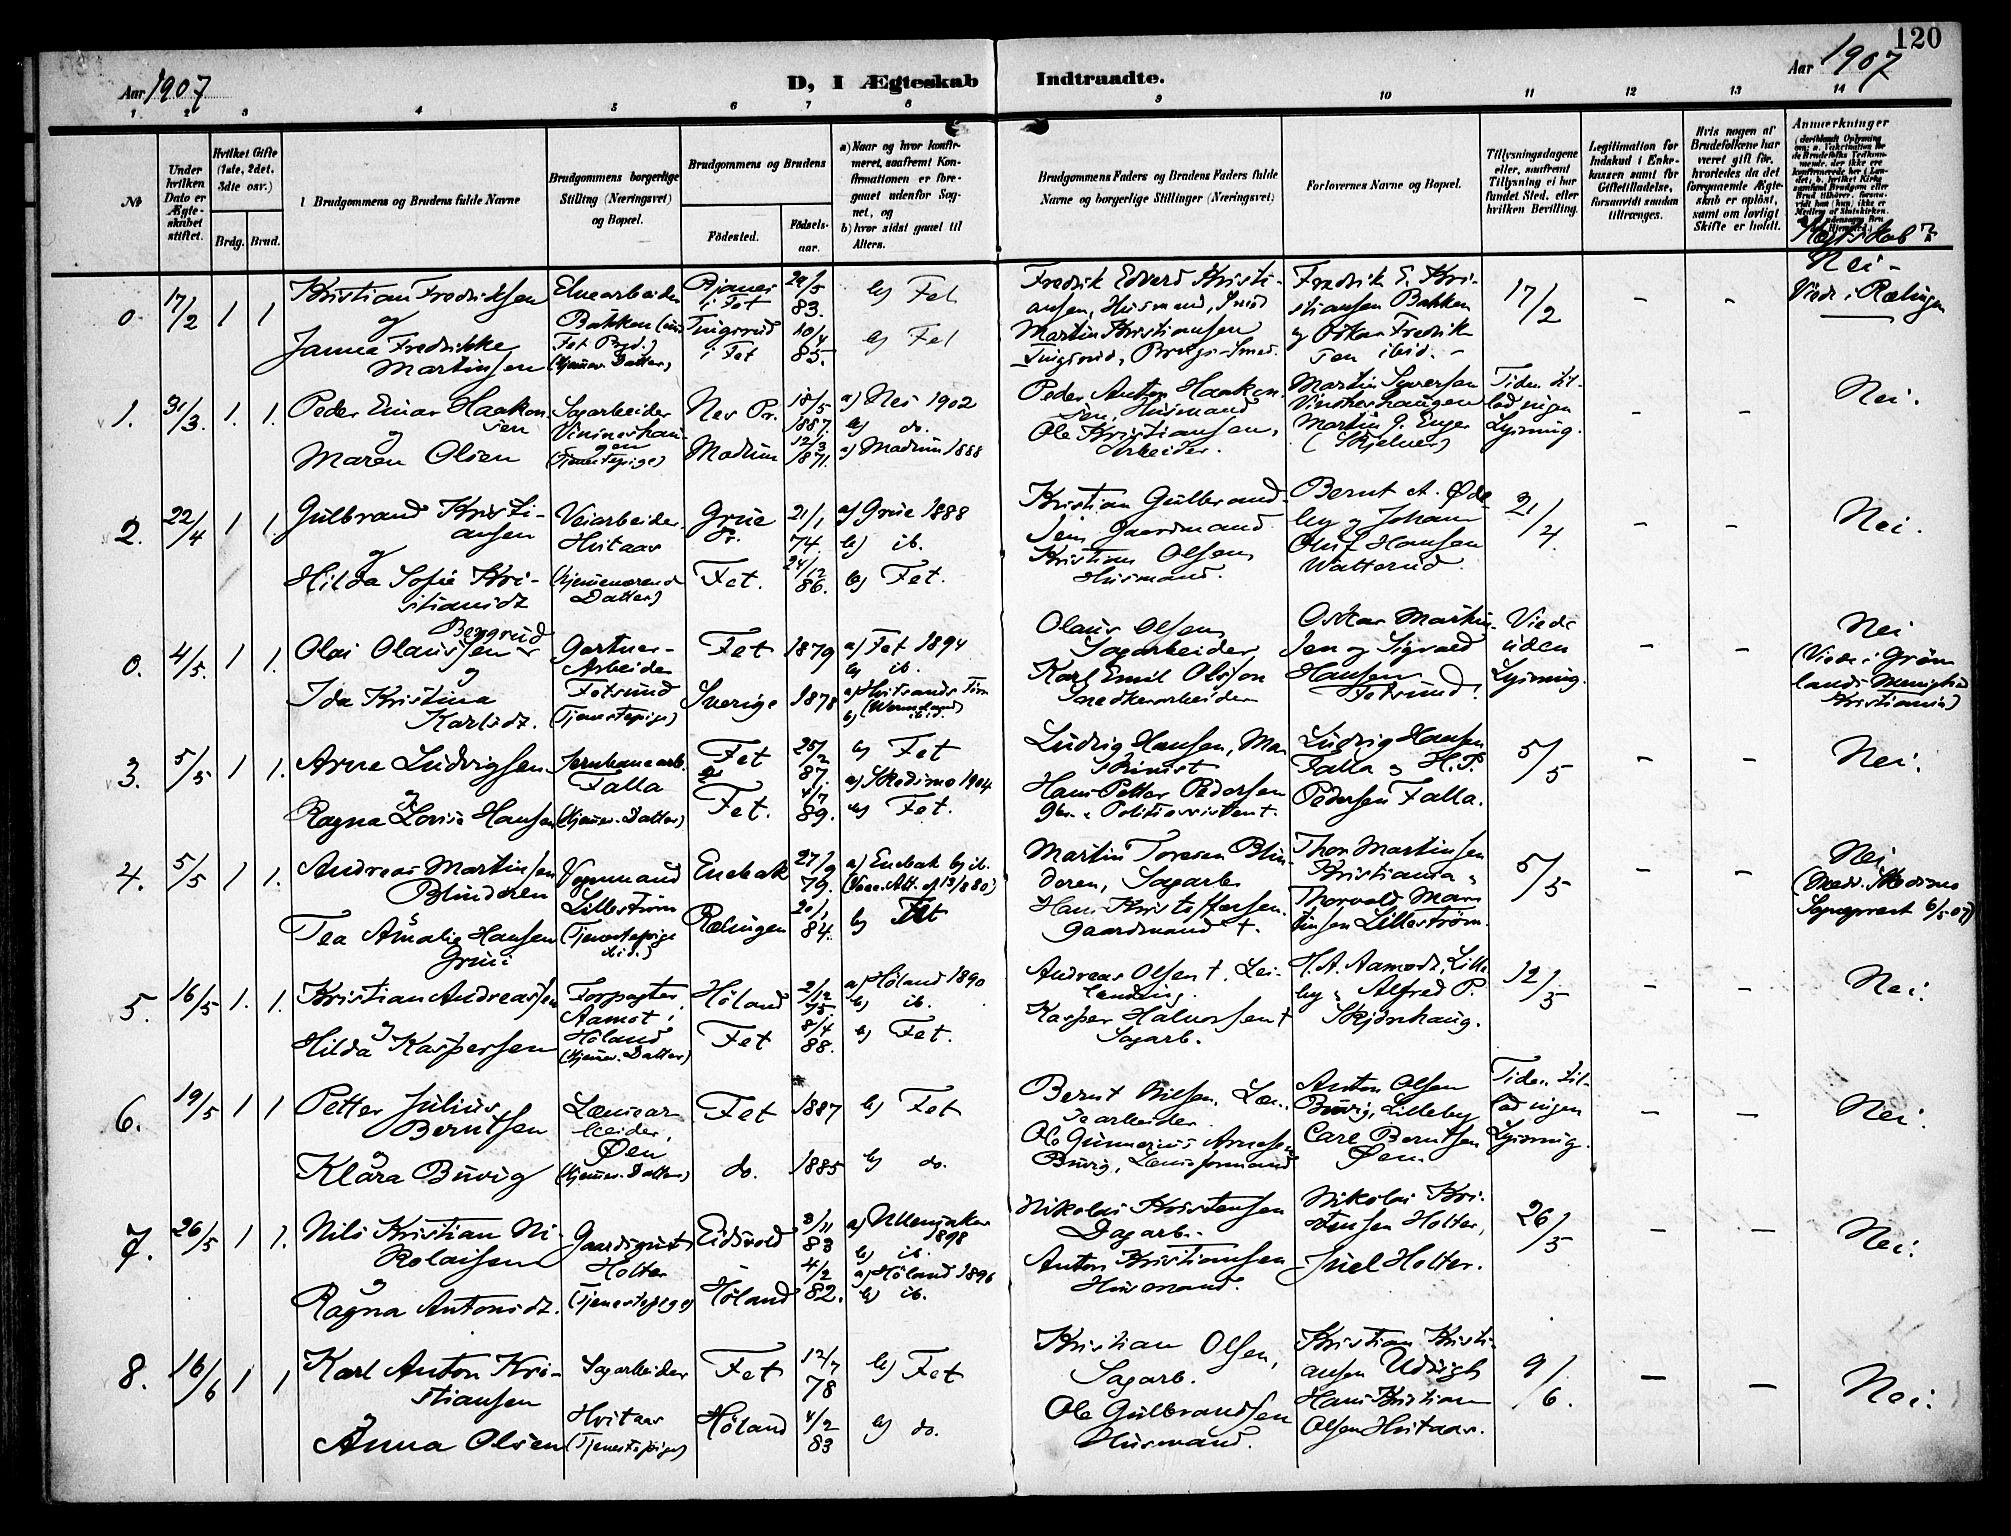 120
Aar 1907
D, I Ægteskab Indtraadte.
Aar 1907
1 2 3 4 5 6 7 8 9 10 11 12 13 14
No
Under hvilken Dato er Ægteskabet stiftet.
Hvilket Gifte (1ste, 2det, 3dte osv.)
Brdg. Brud.
Brudgommens og Brudens fulde Navne
Brudgommens borgerlige Stilling (Næringsvei) og Bopæl.
Brudgommens og Brudens
Fødested.
Fødselsaar.
a) Naar og hvor konfirmeret, saafremt Konfirmationen er foregaaet udenfor Sognet, og
b) hvor sidst gaaet til Alters.
Brudgommens Faders og Brudens Faders fulde Navne og borgerlige Stillinger (Næringsvei)
Forlovernes Navne og Bopæl.
Tillysningsdagene eller, saafremt Tillysning ei har fundet Sted, efter hvilken Bevilling.
Legitimation for Indskud i Enkekassen samt for Giftetilladelse, forsaavidt saadan tiltrænges.
Hvis nogen af Brudefolkene har været gift før, hvorledes da det foregaaende Ægteskab er opløst, samt om lovligt Skifte er holdt.
Anmærkninger
0. 17/2 1 1
Kristian Fredriksen
og
Janna Fredrikke
Martinsen
Elvearbeider
Bakken
(hjemmev. Datter)
i Fet
Tingsrud
i Fet
29/5
83.
10/4
85.
b) Fet
b) Fet
Fredrik Edvard Kristi-
ansen, Husmand, Smed
Martin Kristiansen
Tingsrud, Brugs-Smed.
Fredrik E. Kri-
stiansen Bakken
og Oskar Fredrik-
sen ibid. -
17/2
-
-
Nei -
Viede i Rælingen
1. 31/3. 1. 1.
Peder Einar Haakon-
sen
og
Maren Olsen
Sagarbeider
(Tjenestepige)
Nes Pr.
Modum
18/5
1887.
12/3
1871.
a) Nes 1902
b) do.
a) Modum 1888
Peder Anton Haakon-
sen, Husmand
Ole Kristiansen,
Arbeider.
Martin Syversen
Martin J. Enger
(Skjelver)
Tiden til-
lod ingen
Lysning.
-
-
Nei.
2. 22/4 1 1.
Gulbrand Kristi-
ansen
og
Hilda Sofie Kri-
stiansdt
Veiarbeider
Hvitaar
(hjemmeværende
Datter)
Grue
Pr.
Fet.
21/1
74.
24/12
86.
a) Grue 1888
b) ib.
b) Fet.
Kristian Gulbrand-
sen Gaardmand
Kristian Olsen,
Husmand.
Bernt A. Øde-
by og Johan
Oluf Hansen
Watterud
21/4.
-
-
Nei.
0. 4/5. 1 1.
Bergerud
Olai Olaussen
og
Ida Kristina
Karlsdt.
Gartner-
Arbeider
Fetsund
(Tjenestepige)
Fet
Sverige
1879
1878
a) Fet 1894
b) ib.
b) ibid.
Olaus Olsen,
Sagarbeider
Karl Emil Olsson
Snedkerarbeider
Oskar Martin-
sen og Sigvald
Hansen
Fetsund.
Viede
uden
Lysning.
-
-
Nei
(Viede i Grøn-
lands Menighed
Kristiania)
3. 5/5 1 1.
Arne Ludvigsen
og
Ragna Lovise Hansen
Jernbanearb.
Falla
(hjemmev. Datter)
Fet
Fet.
25/2
87.
4/7
89.
b) Fet
a) Skedsmo 1904
b) Fet.
Ludvig Hansen, Ma-
skinist
Hans Petter Pedersen
Ludvig Hansen
Falla og H. P.
Pedersen Falla.
5/5
-
-
Nei.
4. 5/5 1 1.
Andreas Martinsen
Blinderen
og
Tea Amalie Hansen
Lillestrøm
(Tjenestepige
ibid.)
Enebak
Rælingen
27/9
79.
20/1
84.
a) Enebak b) ib.
(Vacc. Att. af 13/8 80)
b) Fet
Martin Toresen Blin-
deren, Sagarb.
Hans Kristoffersen
Gaardmand †.
Thor Martinsen
Kristiania og
Thorvald Mar-
tinsen Lillestrøm.
5/5
-
-
Nei
Sogneprest 6/5 07)
5. 16/5 1. 1.
Kristian Andreassen
og
Hilda Kaspersen
Forpagter
Aamot i
Høland
(hjemmev. Datter)
Høland
Fet
2/12
75.
8/4
88.
a) Høland 1890
b) ib.
b) Fet.
Andreas Olsen †. Lei-
lending.
Kasper Halvorsen †
Sagarb.
H. A. Aamodt, Lille-
by og Alfred P.
Skjønhaug.
12/5
-
-
Nei.
6. 19/5 1 1
Petter Julius
Berntsen
og
Klara Buvig
Lænsear-
beider,
Øen
(hjemmev. Datter)
Fet
do.
1887
1885
b) Fet
b) do.
Bernt Nilsen, Læn-
searbeider
Ole Gunnerius Arnesen
Buvig, Lænseformand
Anton Olsen
Buvig, Lilleby
Carl Berntsen
Øen.
Tiden til-
lod ingen
Lysning.
-
-
Nei.
7. 26/5 1 1.
Nils Kristian Ni-
kolaisen
og
Ragna Antonsdt.
Gaardsgut
Holter
(Tjenestepige)
Eidsvold
Høland
3/11
83
4/2
82.
a) Ullensaker
1898
b) ib.
a) Høland 1896
b) ib.
Nikolai Kristensen
Dagarb.
Anton Kristiansen
Husmand.
Nikolai Kri-
stensen Holter,
Juel Holter.
26/5
-
-
Nei.
8. 16/6 1 1
Karl Anton Kri-
stiansen
og
Anna Olsen
Sagarbeider
Hvitaar
(Tjenestepige)
Fet
Høland
12/7
78
4/2
83
b) Fet
b) do.
Kristian Olsen,
Sagarb.
Ole Gulbrandsen
Husmand.
Kristian Kristi-
ansen
Hans Kristian
Olsen Hvitaar.
9/6.
-
-
Nei.